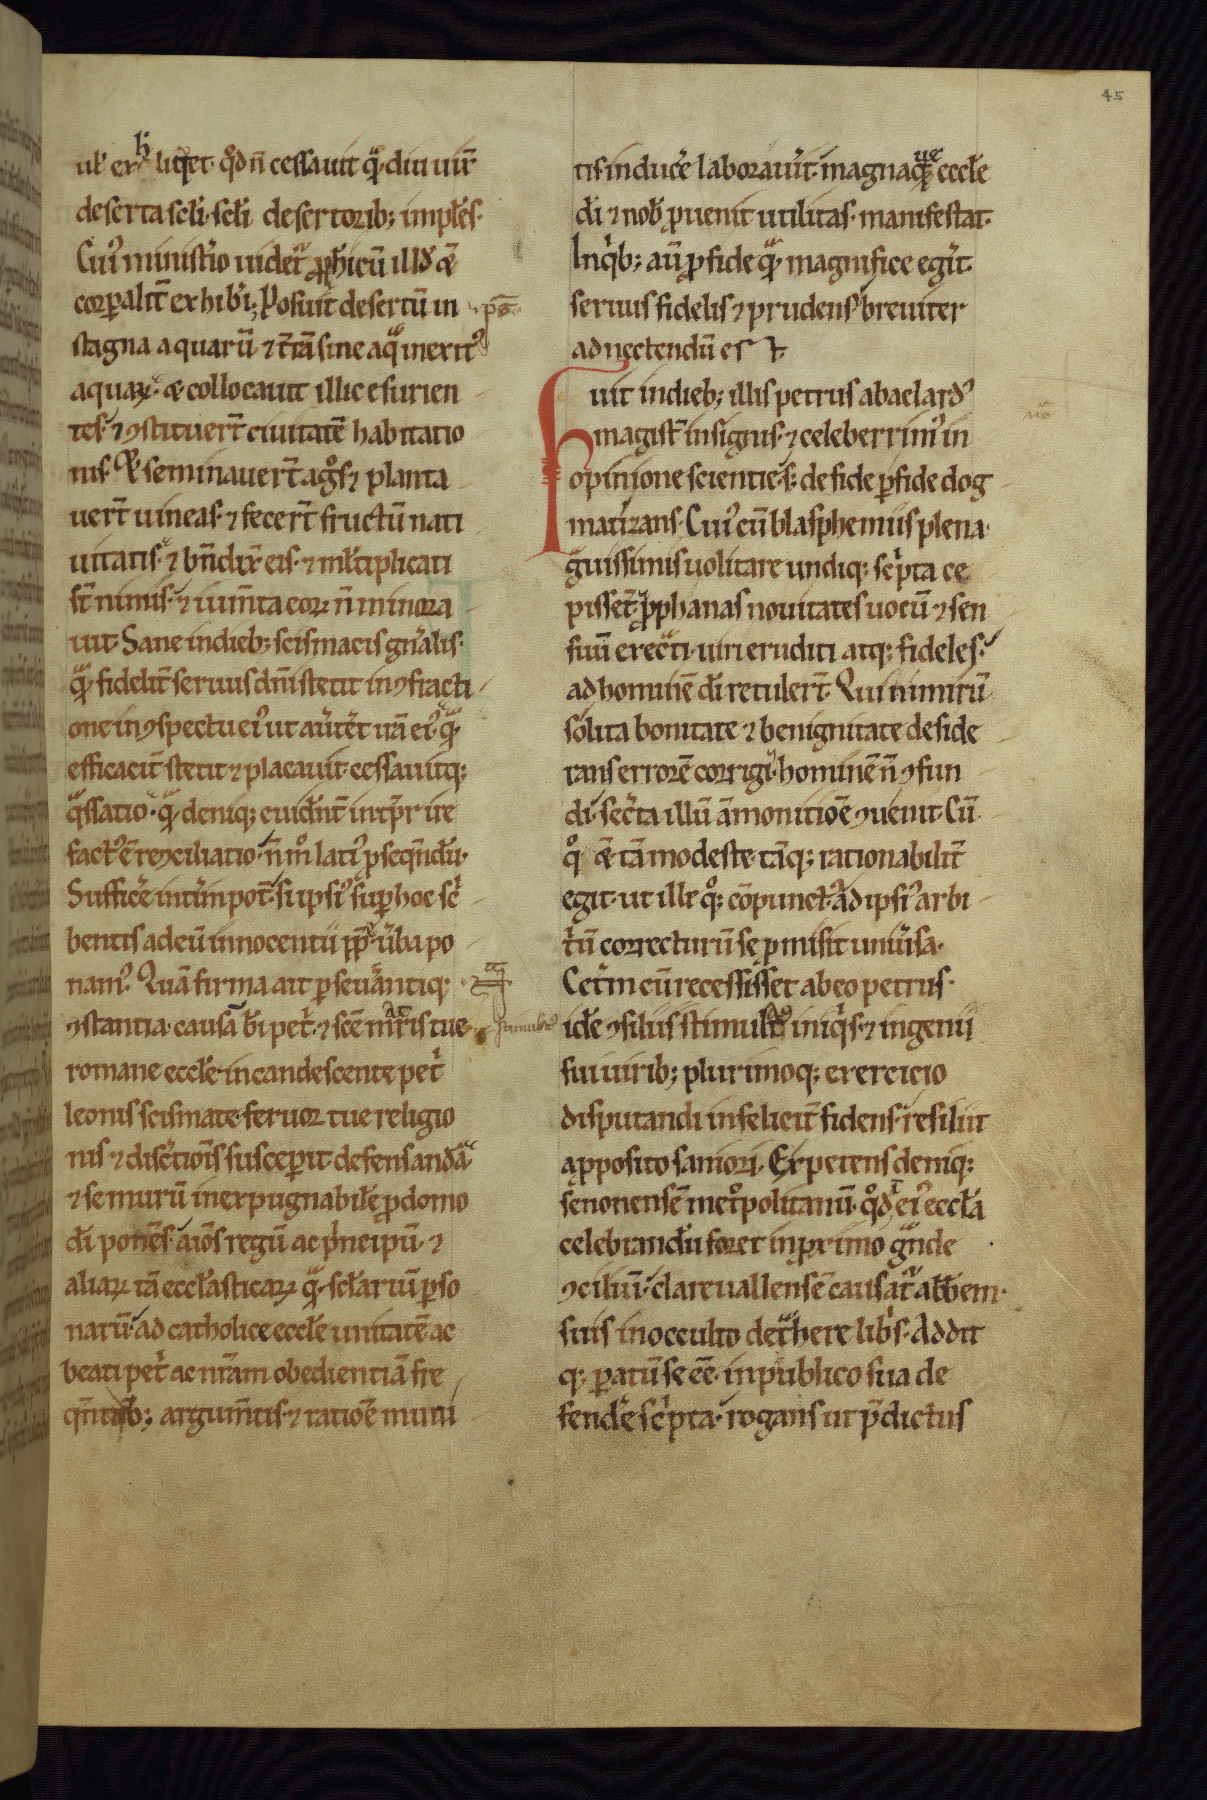 45
ul' ex h' liq̄et. q̊d n̄ cessauit q̄ᵃ diu uix̄
deserta sc̄li. sc̄li desertorib; impl̄es.
Cui᷒ minist̄io uidet᷑ ꝓph̄icū illđ &
corꝑalit̄ exhib'i; Posuit desertū in
stagna aquarū ⁊ t̄rā sine aq̄ᵃ in exit᷒
aquaꝝ. & collocauit illic esurien
tes. ⁊ ꝯstituer̄t ciuitatē habitatio
nis. Et seminauer̄t ag̊s ⁊ planta
uer̄t uineas. ⁊ fecer̄t fructū nati
uitatis. ⁊ bn̄dix̄ eis. ⁊ ml̄tiplicati
st̄ nimis. ⁊ ium̄ta eoꝝ n̄ minora
uit. Sane in dieb; scismacis gn̄alis.
q̄ᵃ fidelit̄ seruus dn̄i stetit in ꝯfracti
one in ꝯspectu ei᷒ ut au̾tet̾ irā ei᷒. q̄ᵃ
efficacit̄ stetit ⁊ placauit. cessauitq;
q̄ᵃssatio. q̄ᵃ deniq; euiđnt̄ int̄ pr̄ ire
fact᷒ ē reꝯciliatio. n̄ m̊ lati᷒ ꝓseq̄ndū.
Suffic̾e int̾im pot̄. si ipsi᷒ suꝑ hoc sc̾
bentis ad eū innocentii pp̄. u̾ba po
nam᷒. Quā firma ait ꝑseuᵃntiq;
ꝯstantia. causā b̄i pet̾. ⁊ sc̄e mr̄is tue
romane eccl̄e. incandescente pet̾
leonis scismate. feruor tue religio
nis ⁊ disc̾tiōis susceꝑit defensandā.
⁊ se murū inexpugnabilē ꝓ domo
d̄i ponēs. aīos regū ac p̾ncipū. ⁊
aliaꝝ tā eccl̄asticaꝝ q̄ᵃ sc̄lariū ꝑso
narū. ad catholice eccl̄e unitatē ac
beati pet̾ ac nr̄am obedientiā fre
q̄ntib; argum̄tis. ⁊ ratiōe muni
tis induc̾e laborauit. magnaq̄ᵘᵉ eccl̄e
d̄i ⁊ nob̄ ꝓuenit utilitas. manifestat.
In q̾b; aū ꝓ fide q̄ᵃ magnifice eg̾it
seruus fidelis ⁊ prudens. breuiter
adnectendū est.
Fuit in dieb; illis petrus abaelard᷒
magist̄ insignis. ⁊ celeberrim᷒ in
opinione scientie. s; de fide ꝑfide dog
matizans. Cui᷒ cū blasphemiis plena
gᵃuissimis uolitare undiq; sc̾pta ce
pisset̄. ꝓphanas nouitates uocū ⁊ sen
suū erecti uiri eruditi atq; fideles.
ad hominē d̄i retuler̄t. Qui nimirū
solita bonitate ⁊ benignitate deside
rans errorē corrigi. hominē n̄ ꝯfun
di. sec̾ta illū āmonitiōe ꝯuenit. Cū
q̊ & tā modeste. tāq; rationabilit̄
egit. ut ille q̊q; cōpunct᷒. ad ipsi᷒ arbi
t̾ū correcturū se ꝓmisit uniu̾sa.
Cet̾m cū recessisset ab eo petrus.
idē ꝯsiliis stimulat᷒ iniq̾s. ⁊ ingenii
sui uirib; plurimoq; exercicio
disputandi infelicit̄ fidens. resiliit
a ꝓposito saniori. Expetens deniq;
senonensē met̊politanū. q̊d ei᷒ eccl̄a
celebrandū foret in proximo gᵃnde
ꝯciliū. clareuallensē causat᷑ abb̄em.
suis in occulto det̾here lib̾s. Addit
q; paratū se eē. in publico sua de
fend̾e sc̾pta. rogans ut p̄dictus